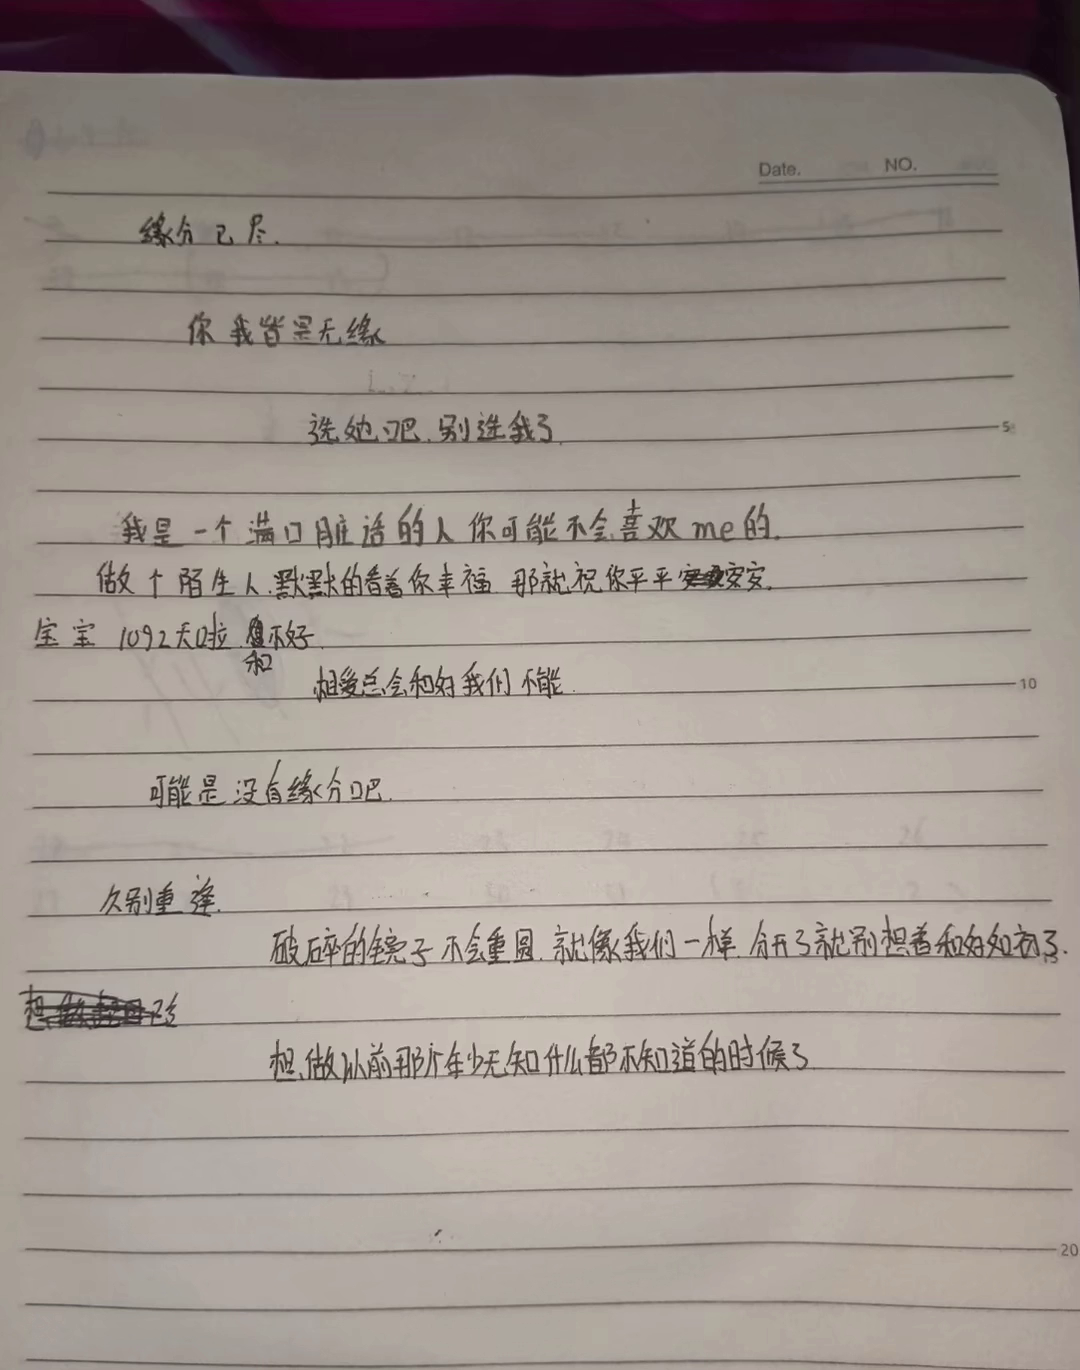 Date. NO.
缘分已尽.
你我皆是无缘
选她吧.别选我了 5
我是一个满口脏话的人你可能不会喜欢me的.
做个陌生人.默默的看着你幸福 那就祝你平平安安.
宝宝 1092天啦 不好
和
相爱总会和好我们不能 10
可能是没有缘分吧.
久别重逢.
破碎的镜子不会重圆.就像我们一样.分开了就别想着和好如初了.
想做以前那个年少无知什么都不知道的时候了
20